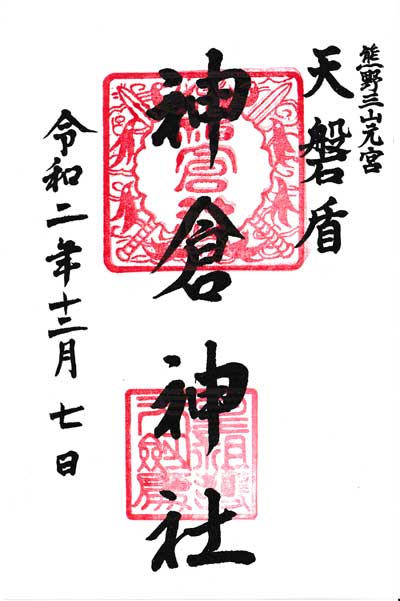 熊野三山元宮
天磐盾
神倉神社
令和二年十二月七日